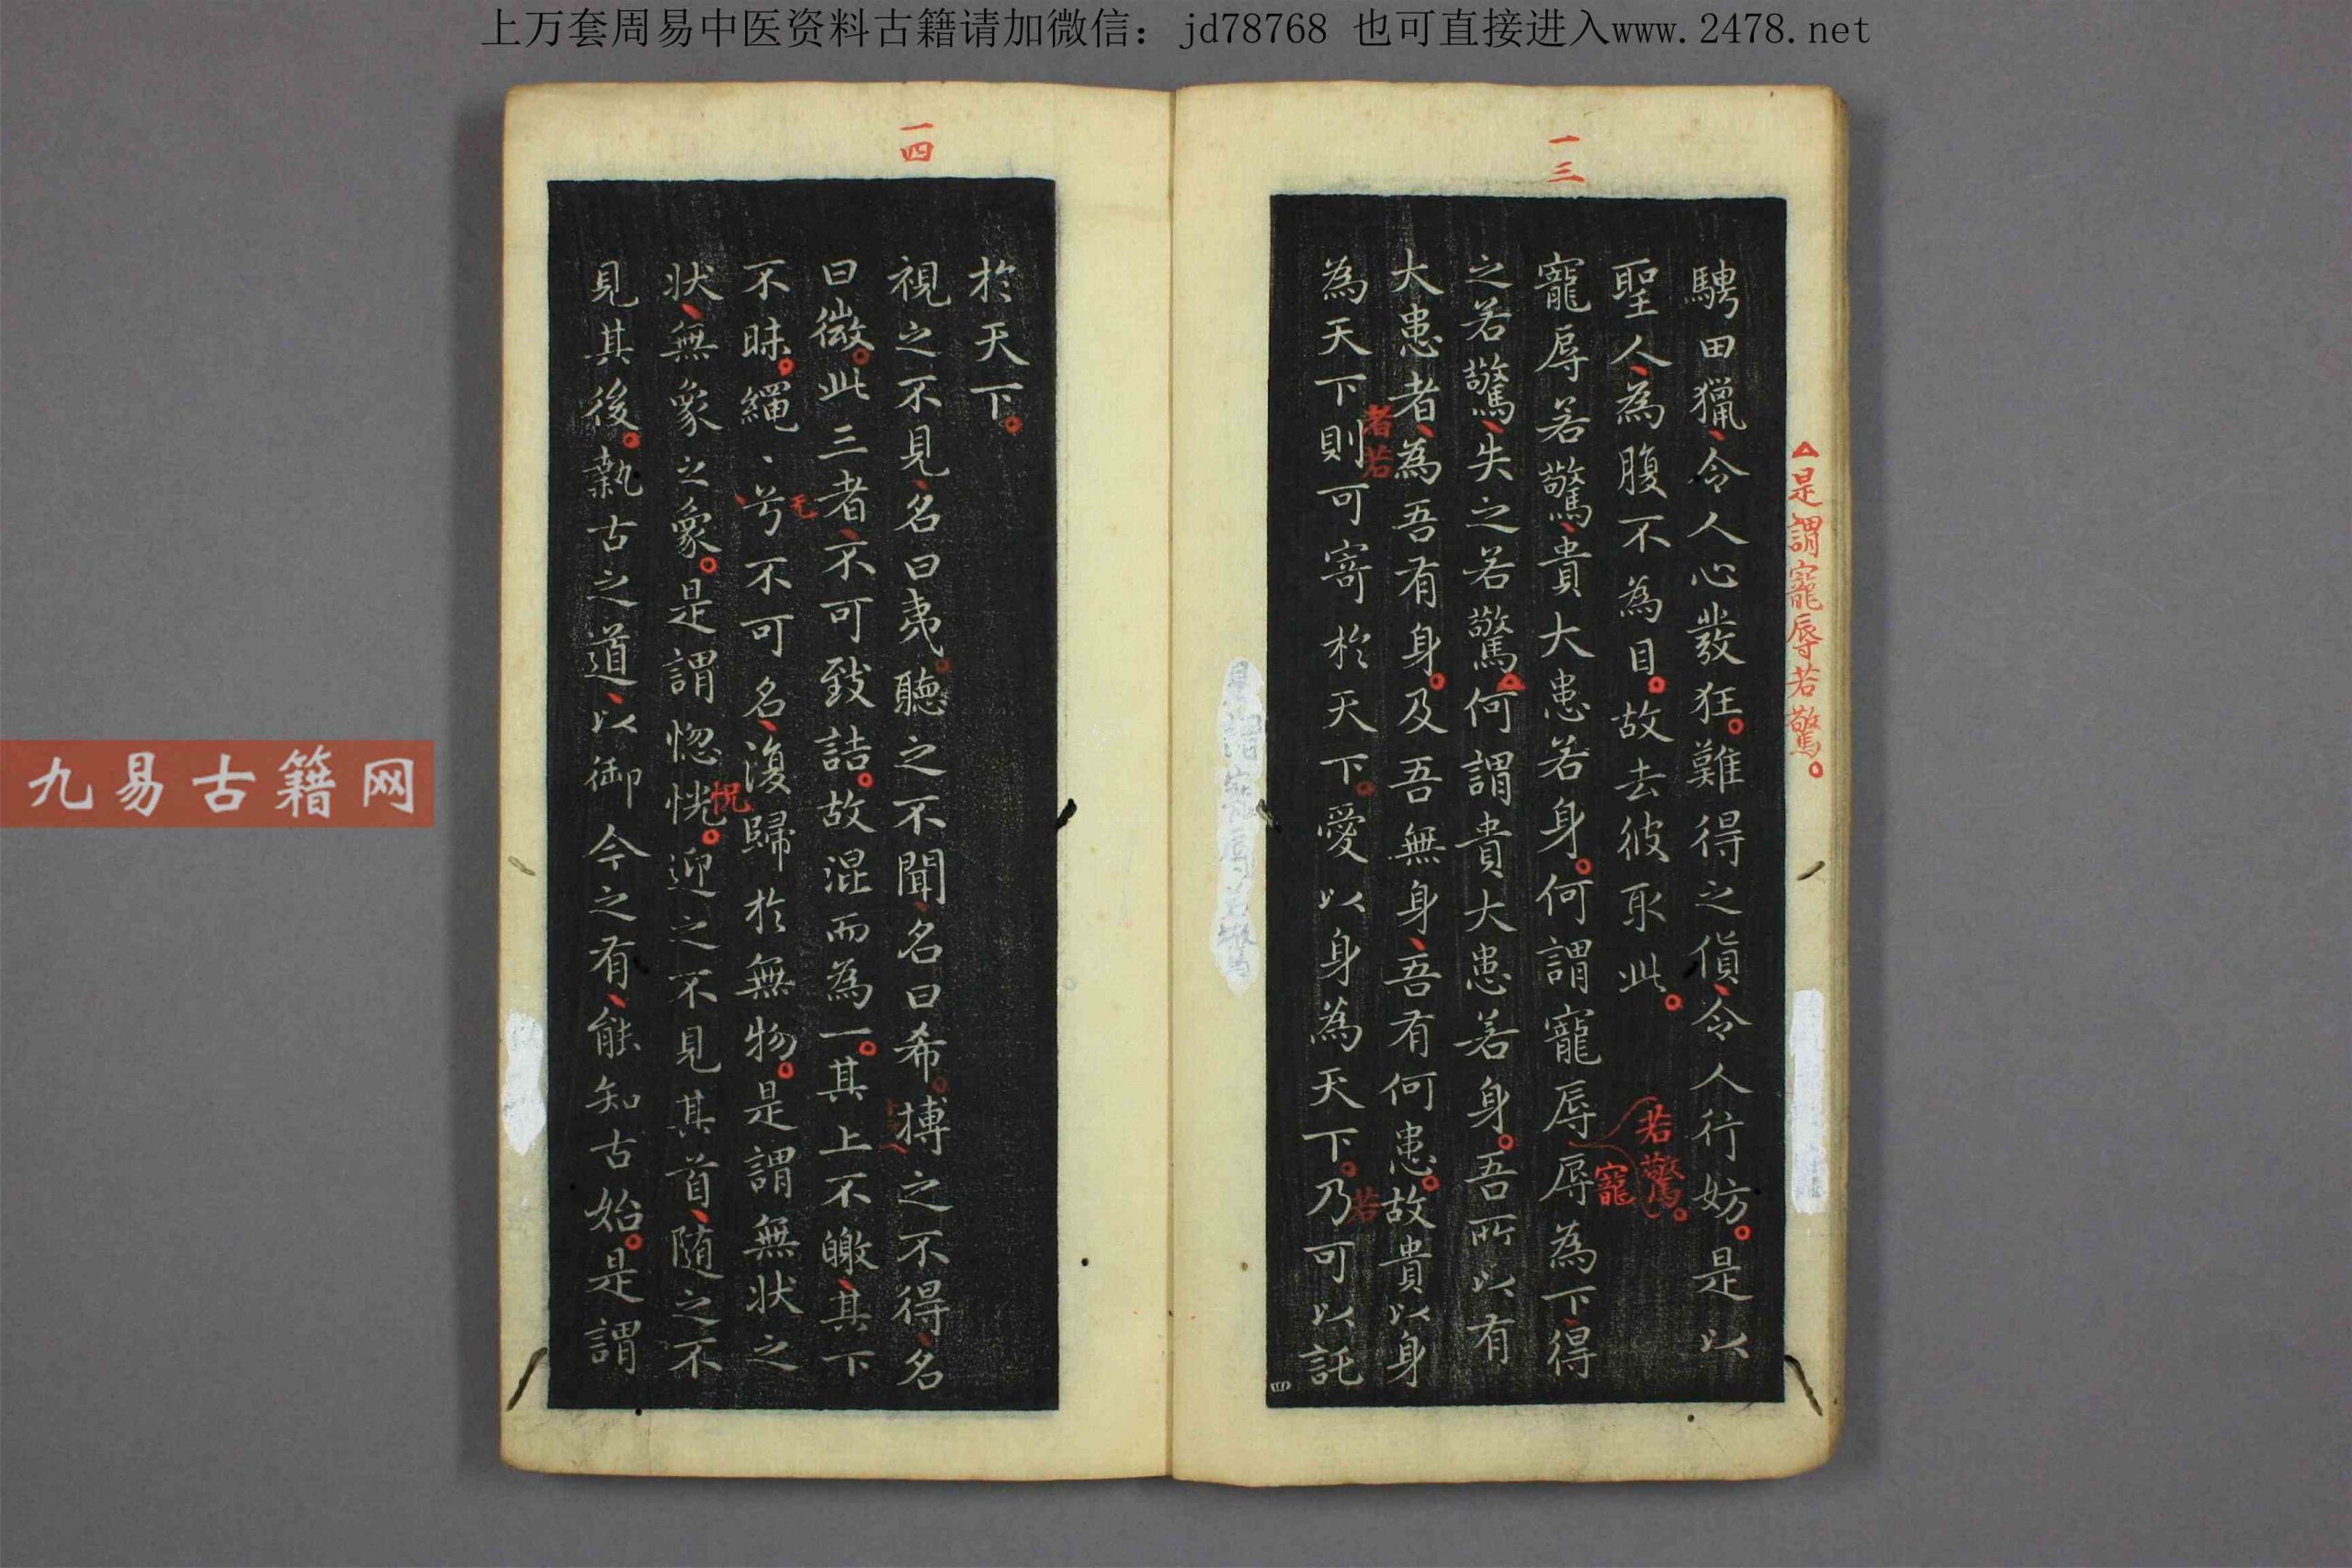 上万套周易中医资料古籍请加微信：jd78768 也可直接进入www.2478.net
九易古籍网
一三
△是謂寵辱若驚。
騁田獵、令人心發狂。難得之貨、令人行妨。是以
聖人、為腹不為目。故去彼取此。
若驚。
寵
寵辱若驚、貴大患若身。何謂寵辱辱為下、得
之若驚、失之若驚△何謂貴大患若身。吾所以有
大患者、為吾有身。及吾無身、吾有何患。故貴以身
者若
若
為天下則可寄於天下。愛以身為天下。乃可以託
一四
於天下。
視之不見、名曰夷。聽之不聞、名曰希。搏之不得、名
曰微。此三者、不可致詰。故混而為一。其上不皦、其下
无
不昧。繩、兮不可名、復歸於無物。是謂無状之
怳
状、無象之象。是謂惚恍。迎之不見其首、随之不
見其後。執古之道、以御今之有、能知古始。是謂